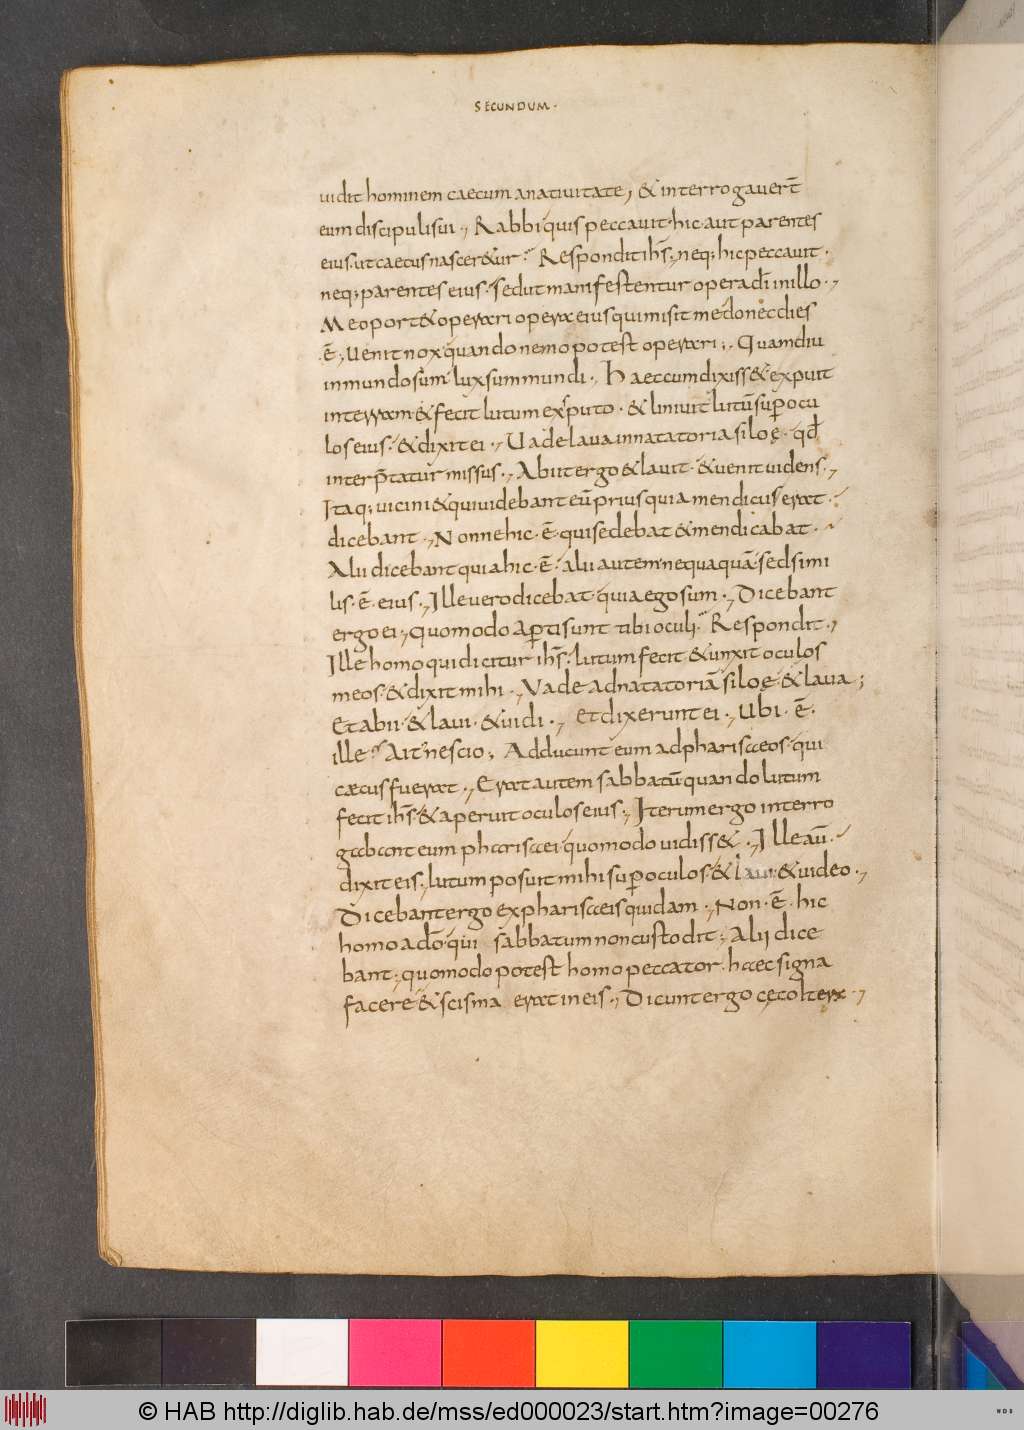 SECUNDUM·
uidit hominem caecum a natiuitate, & interrogauert̄
eum discipuli sui·, Rabbi quis peccauit· hic· aut parentes
eius· ut caecus nascer&ur? Respondit ihs̄, neq; hic peccauit·
neq; parentes eius· sed ut manifestentur opera dī in illo·,
Me oport& operari opera eius qui misit me donec dies
·ē·, uenit nox quando nemo potest operari·, Quamdiu
in mundo sum lux sum mundi·, Haec cum dixiss& expuit
in terram & fecit lutum ex sputo· & liniuit lutū sup̄ ocu
los eius· & dixit ei·, Uade laua in natatoria siloę· qd̄
interp̄tatur missus·, Abiit ergo & lauit· & uenit uidens·,
Itaq; uicini & qui uidebant eū prius quia mendicus erat·
dicebant·, Nonne hic· ē· qui sedebat & mendicabat·
Alii dicebant quia hic· ē· alii autem nequaquā· sed simi
lis· ē· eius·, Ille uero dicebat· quia ego sum·, Dicebant
ergo ei·, quomodo ap̄ti sunt tibi oculi? Respondit·,
Ille homo qui dicitur ihs̄· lutum fecit & unxit oculos
meos· & dixit mihi·, Vade ad natatoriā siloę & laua;
Et abii· & laui· & uidi·, et dixerunt ei·, Ubi· ē·
ille? Ait nescio; Adducunt eum ad pharisaeos· qui
caecus fuerat·, Erat autem sabbatū quando lutum
fecit ihs̄ & aperuit oculos eius·, Iterum ergo interro
gabant eum pharisaei quomodo uidiss&·, Ille aū·
dixit eis·, lutum posuit mihi sup̄ oculos· & laui· & uideo·,
Dicebant ergo ex pharisaeis quidam·, Non· ē· hic
homo a dō· qui sabbatum non custodit·, Alij dice
bant·, quomodo potest homo peccator· haec signa
facere & scisma erat in eis·, Dicunt ergo cęco iterū·,
© HAB http://diglib.hab.de/mss/ed000023/start.htm?image=00276